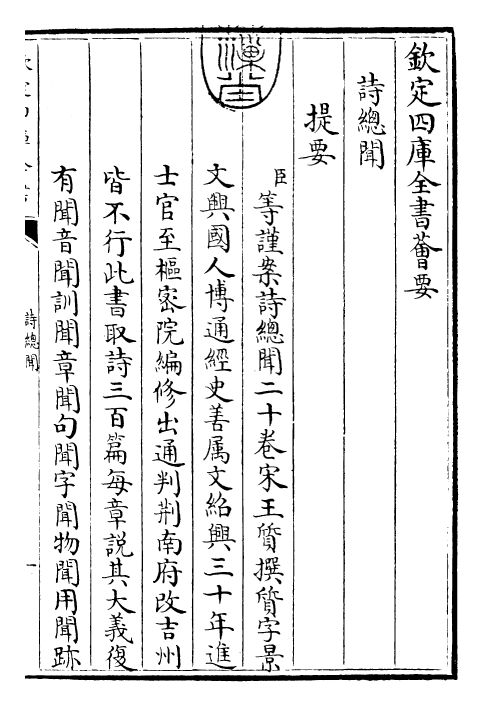 欽定四庫全書薈要
詩總聞
提要
臣等謹案詩總聞二十卷宋王質撰質字景
文興國人博通經史善属文紹興三十年進
士官至樞密院編修出通判荆南府改吉州
皆不行此書取詩三百篇每章說其大義復
有聞音聞訓聞章聞句聞字聞物聞用聞跡
詩總聞
一